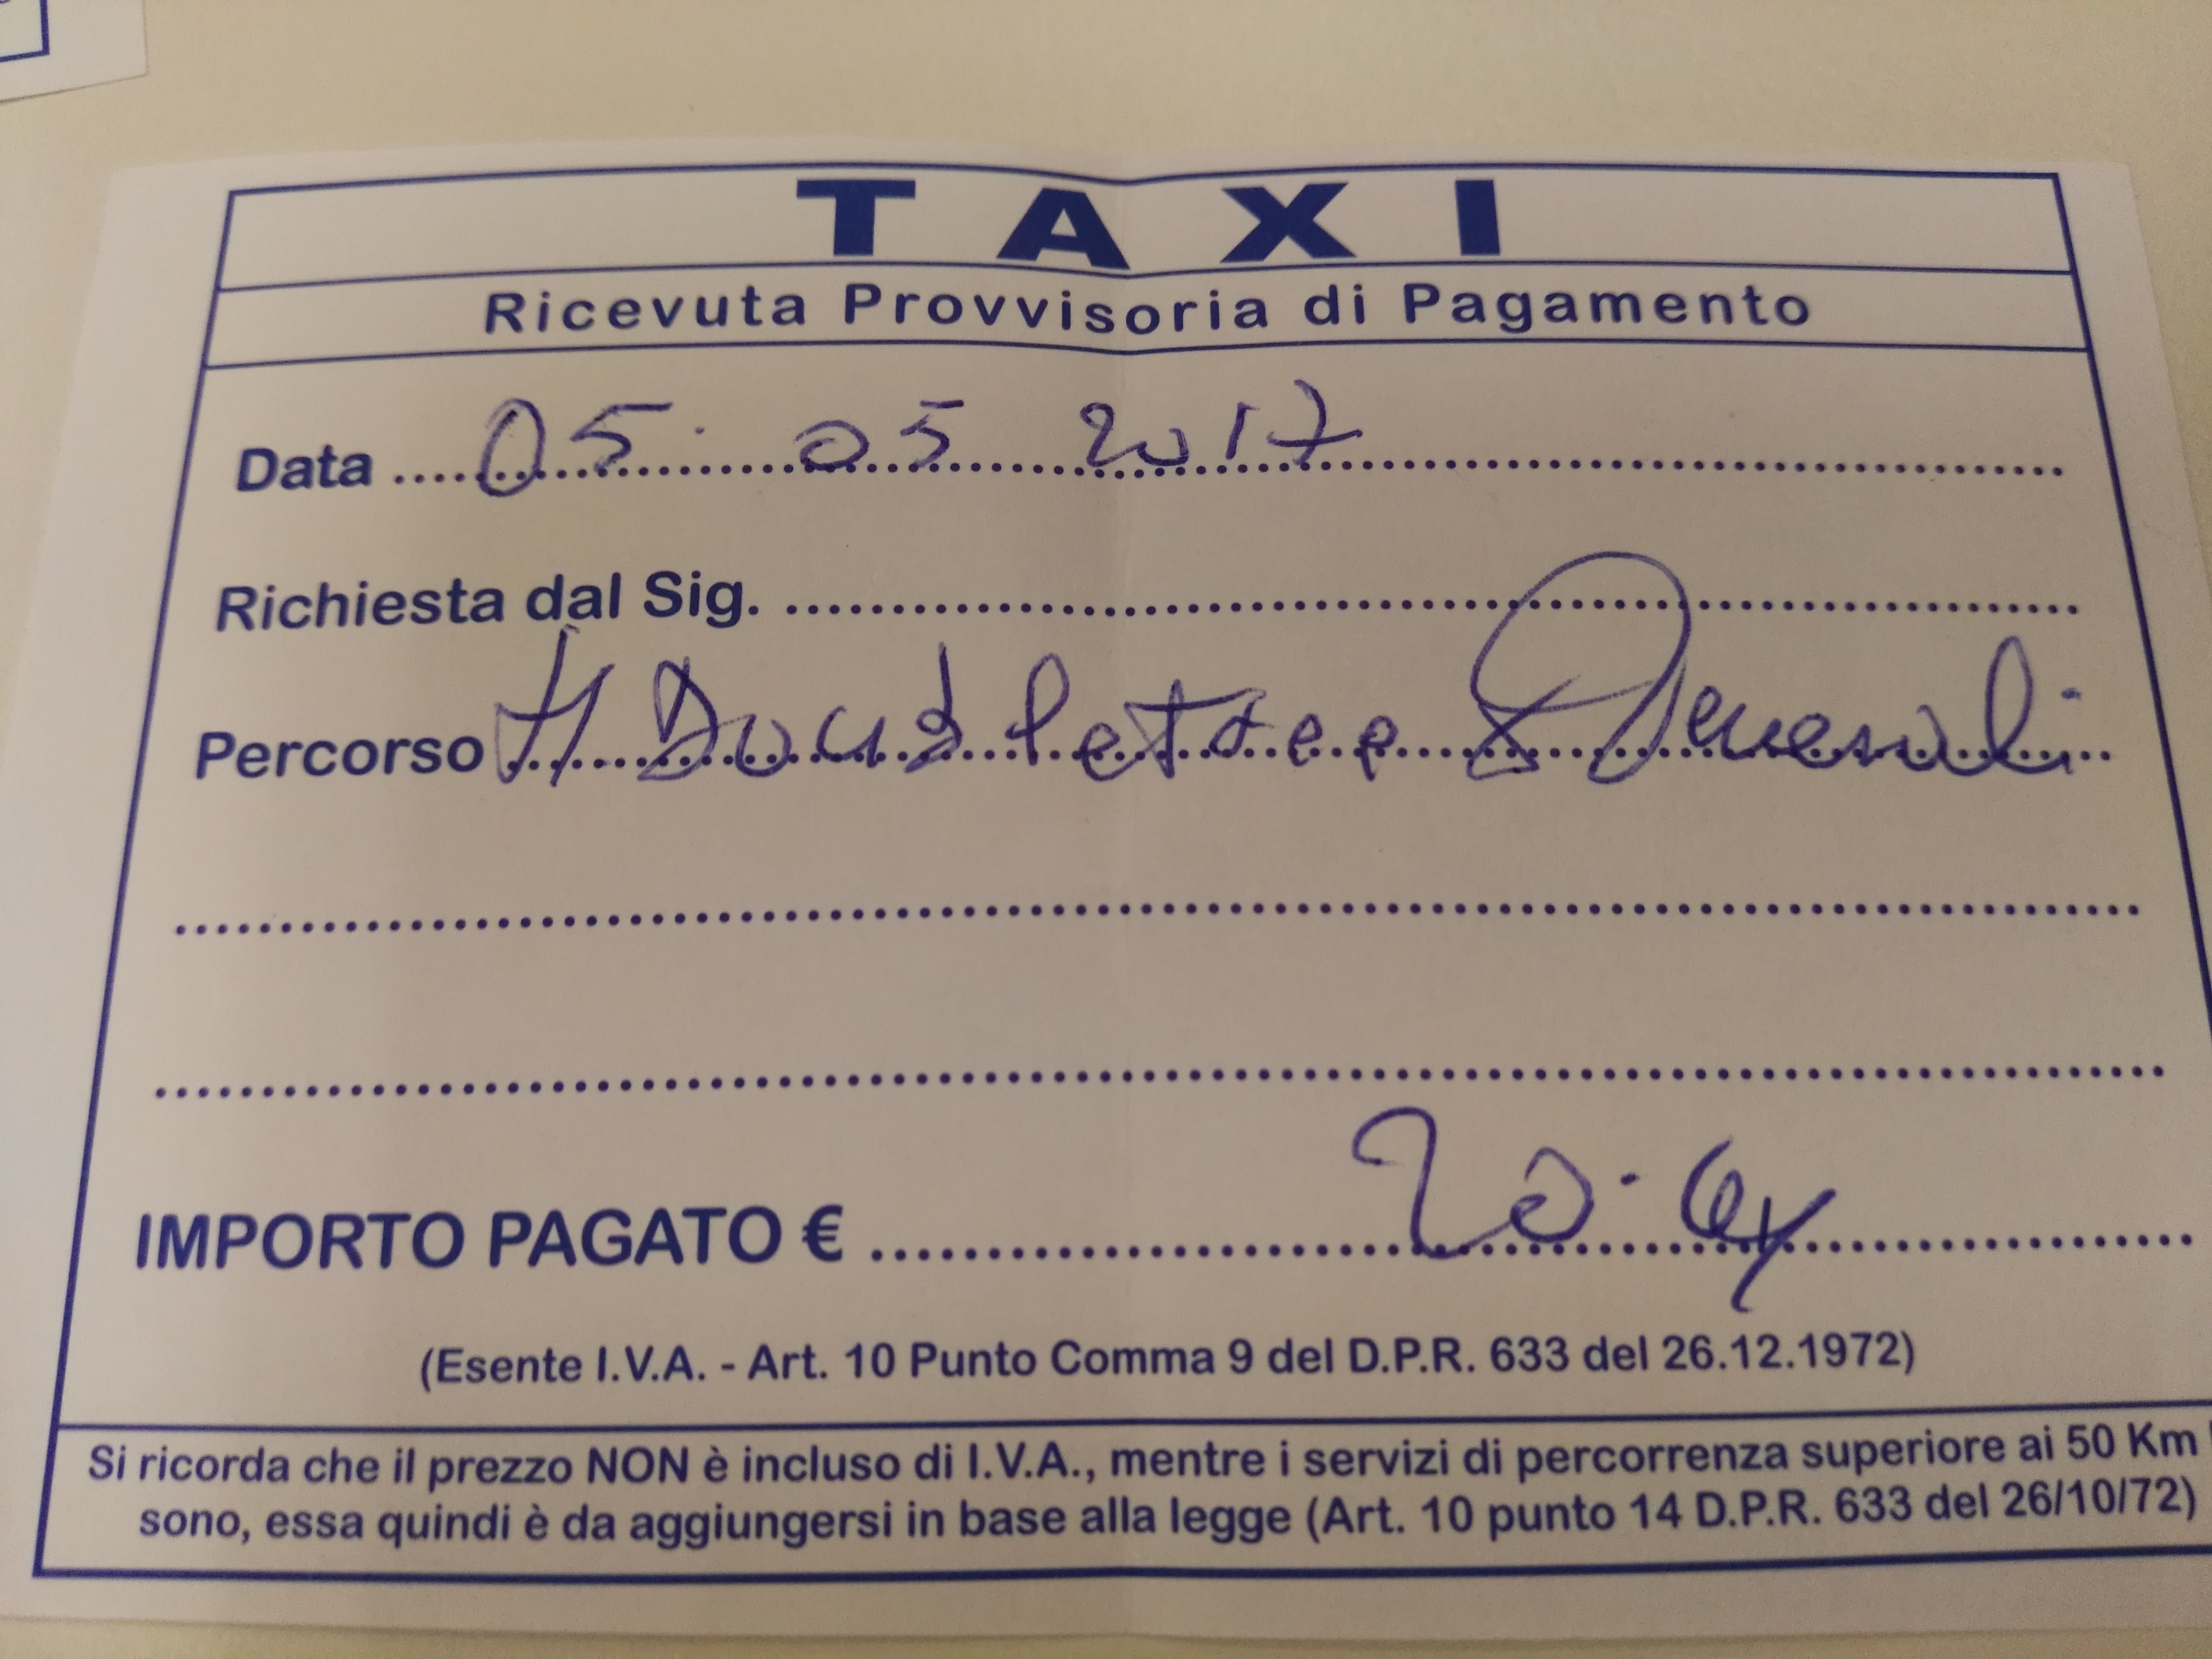 TAXI
Ricevuta Provvisoria di Pagamento
Data 05.05 2017
Richiesta dal Sig.
Percorso H Doubletree X Generali
IMPORTO PAGATO €
(Esente I.V.A. - Art. 10 Punto Comma 9 del D.P.R. 633 del 26.12.1972)
Si ricorda che il prezzo NON è incluso di I.V.A., mentre i servizi di percorrenza superiore ai 50 Km
sono, essa quindi è da aggiungersi in base alla legge (Art. 10 punto 14 D.P.R. 633 del 26/10/72)